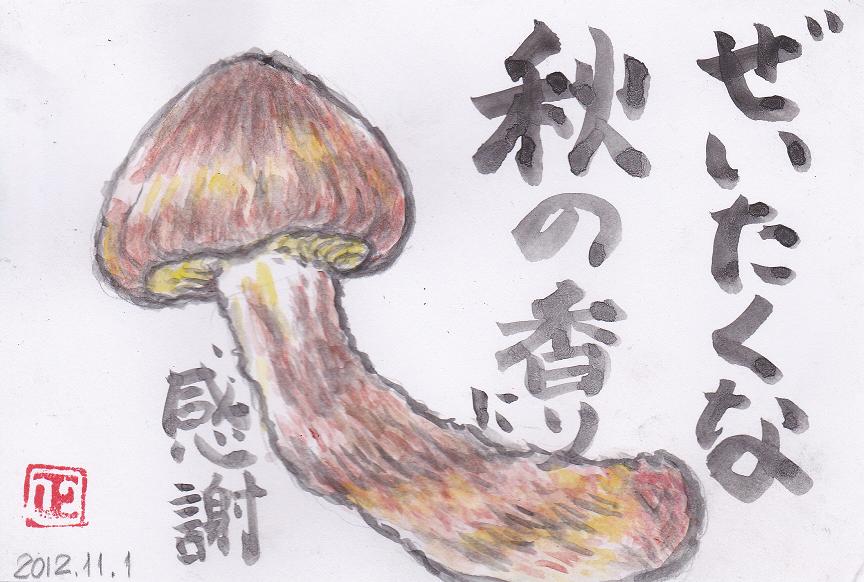 ぜいたくな
秋の香り
に
感謝
2012.11.1